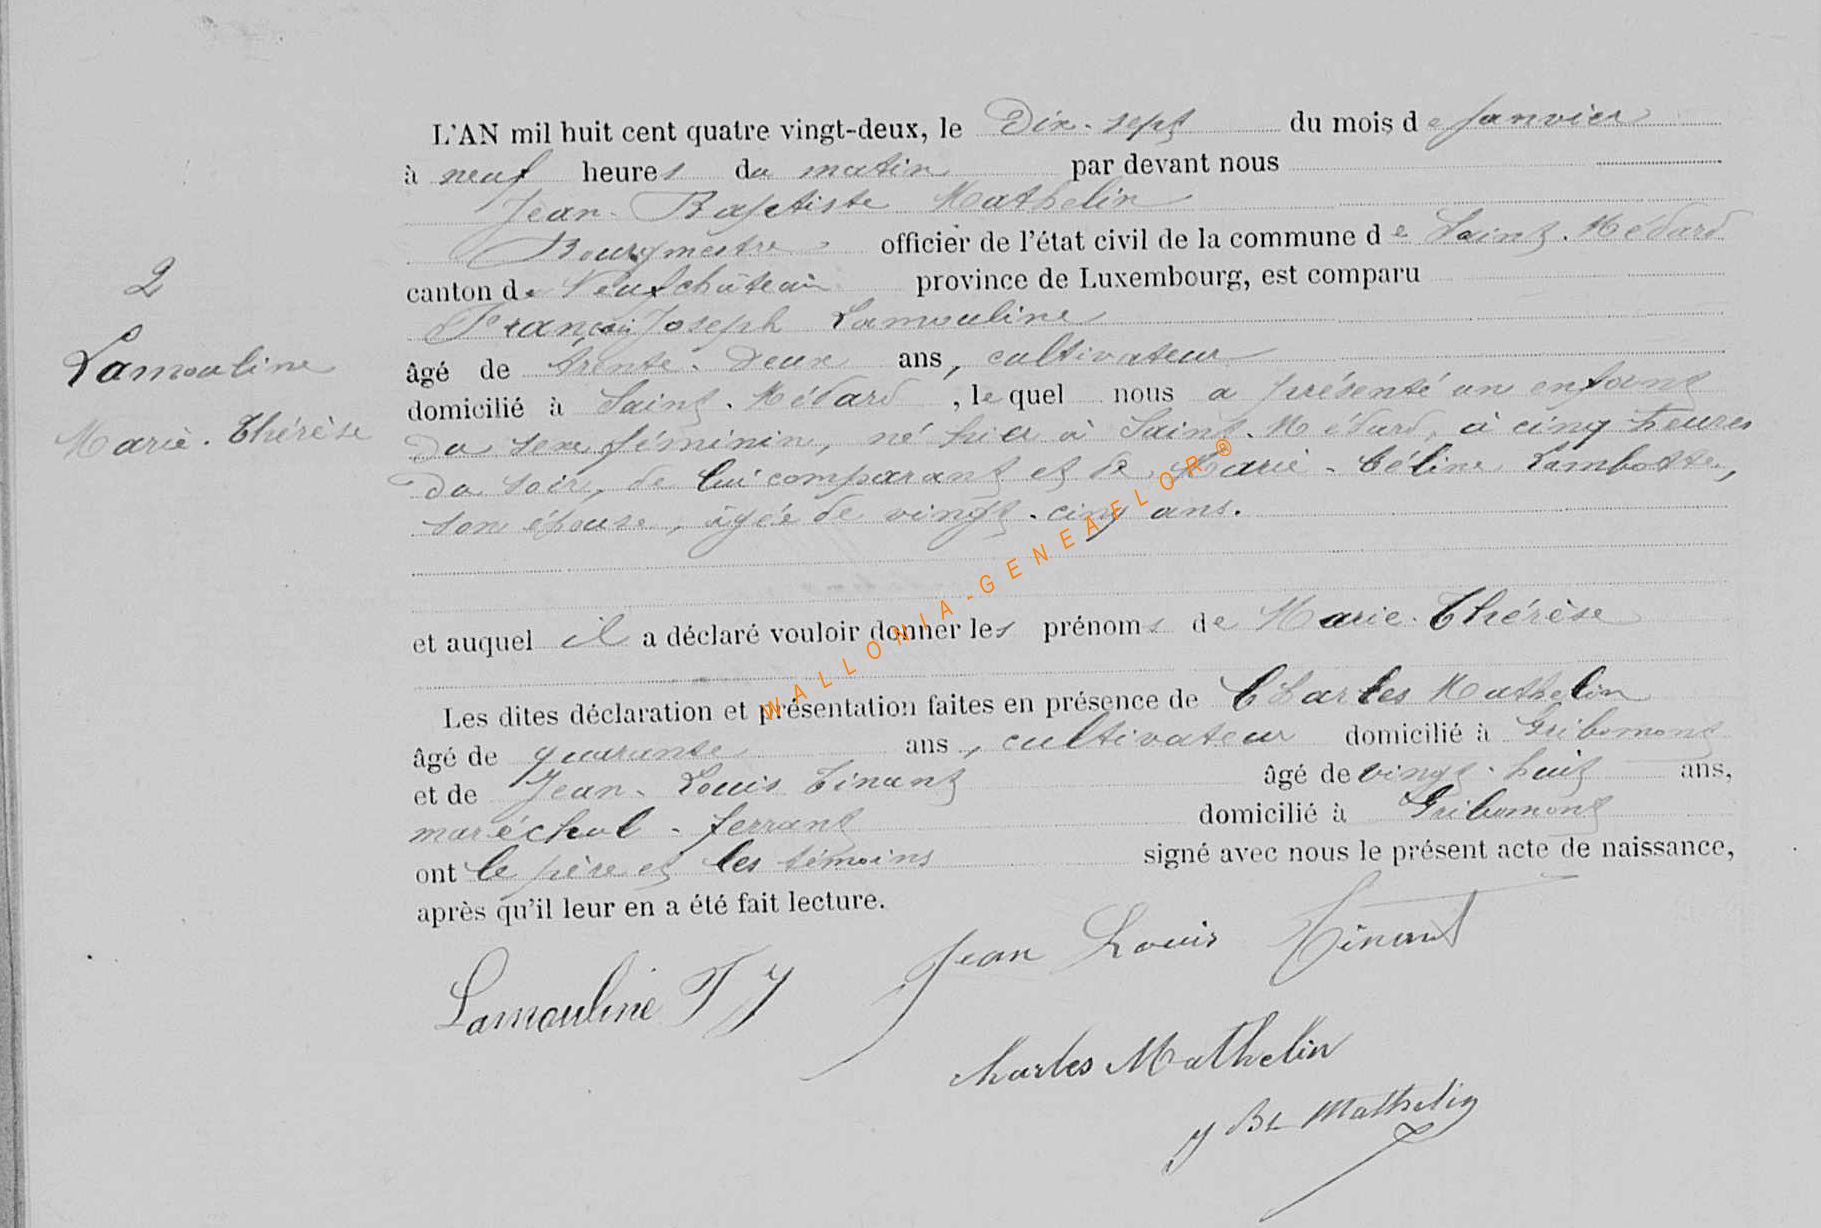 L'AN mil huit cent quatre vingt-deux, le Dix-sept du mois de Janvier
à neuf heures du matin par devant nous
Jean-Baptiste Mathelin
Bourgmestre officier de l'état civil de la commune de Saint-Médard
2
canton de Neufchâteau province de Luxembourg, est comparu
François Joseph Lamouline
Lamouline
Marie-Thérèse
âgé de trente-deux ans, cultivateur
domicilié à Saint-Médard, le quel nous a présenté un enfant
du sexe féminin, né hier à Saint-Médard, à cinq heures
du soir, de lui comparant et de Marie-Céline Lambotte,
son épouse, âgée de vingt-cinq ans.
WALLONIA-GENEAFLOR®
et auquel il a déclaré vouloir donner les prénoms de Marie-Thérèse
Les dites déclaration et présentation faites en présence de Charles Mathelin
âgé de quarante ans, cultivateur domicilié à Gribomont
et de Jean-Louis Tinant âgé de vingt-huit ans,
maréchal-ferrant domicilié à Gribomont
ont le père et les témoins signé avec nous le présent acte de naissance,
après qu'il leur en a été fait lecture.
Jean Louis Tinant
Lamouline F J
Charles Mathelin
J Bt Mathelin